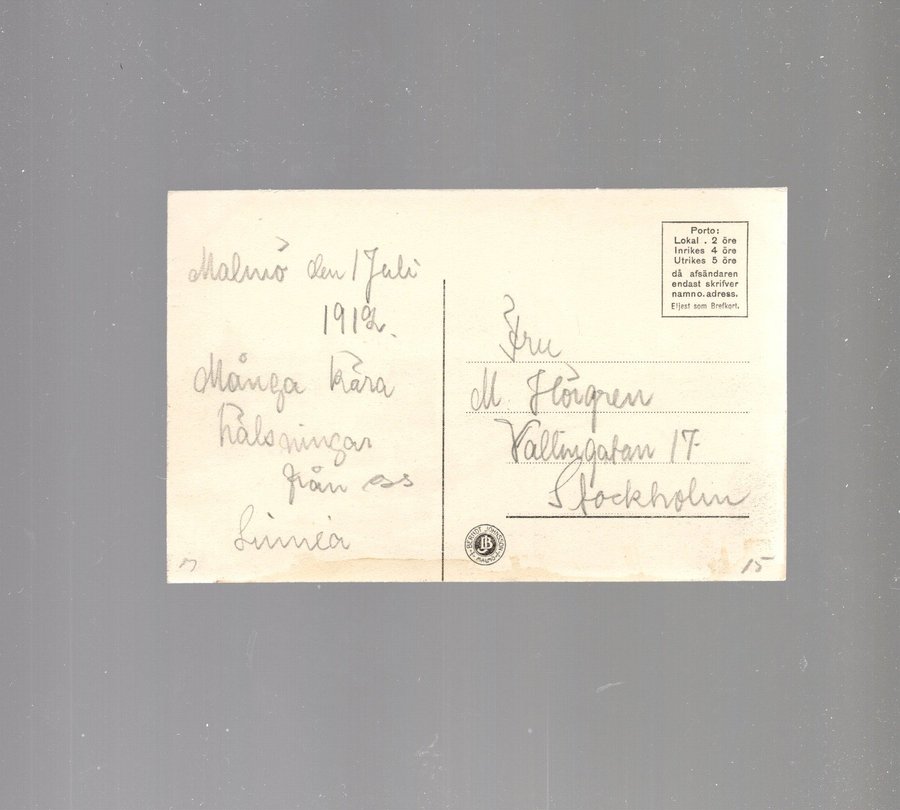 Malmö den 1 Juli
1912.
Många kära
hälsningar
från oss
Linnéa
Porto:
Lokal . 2 öre
Inrikes 4 öre
Utrikes 5 öre
då afsändaren
endast skrifver
namn o. adress.
Eljest som Brefkort.
Fru
M
Vallingatan 17
Stockholm
JB
15